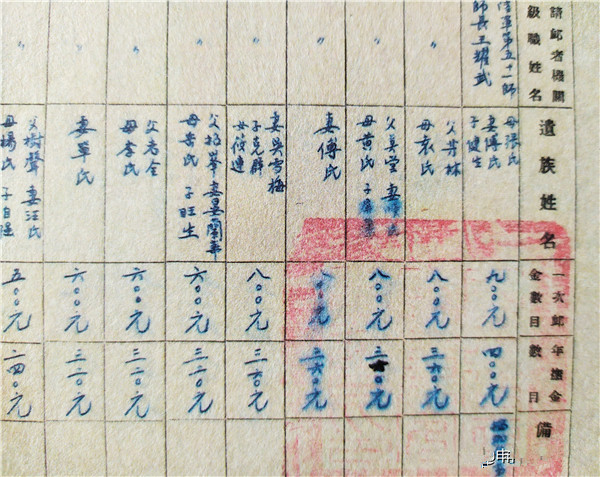 請卹者機關
級職姓名
遺族姓名
一次卹
金數目
年撫金
數目
備
陸軍第五十一師
師長王耀武
母張氏
妻傅氏
子健生
九〇〇元
四〇〇元
〃
父芳林
母袁氏
八〇〇元
三六〇元
〃
父 堂 妻 氏
母黃氏 子
八〇〇元
〃
妻傅氏
八〇〇元
三六〇元
〃
妻吳雪梅
子克
女 連
八〇〇元
三六〇元
〃
父 華 妻晏蘭
母 氏 子旺生
六〇〇元
三二〇元
〃
父 全
母李氏
六〇〇元
三二〇元
〃
妻單氏
六〇〇元
三二〇元
〃
父樹聲 妻汪氏
母楊氏 子自強
五〇〇元
二四〇元